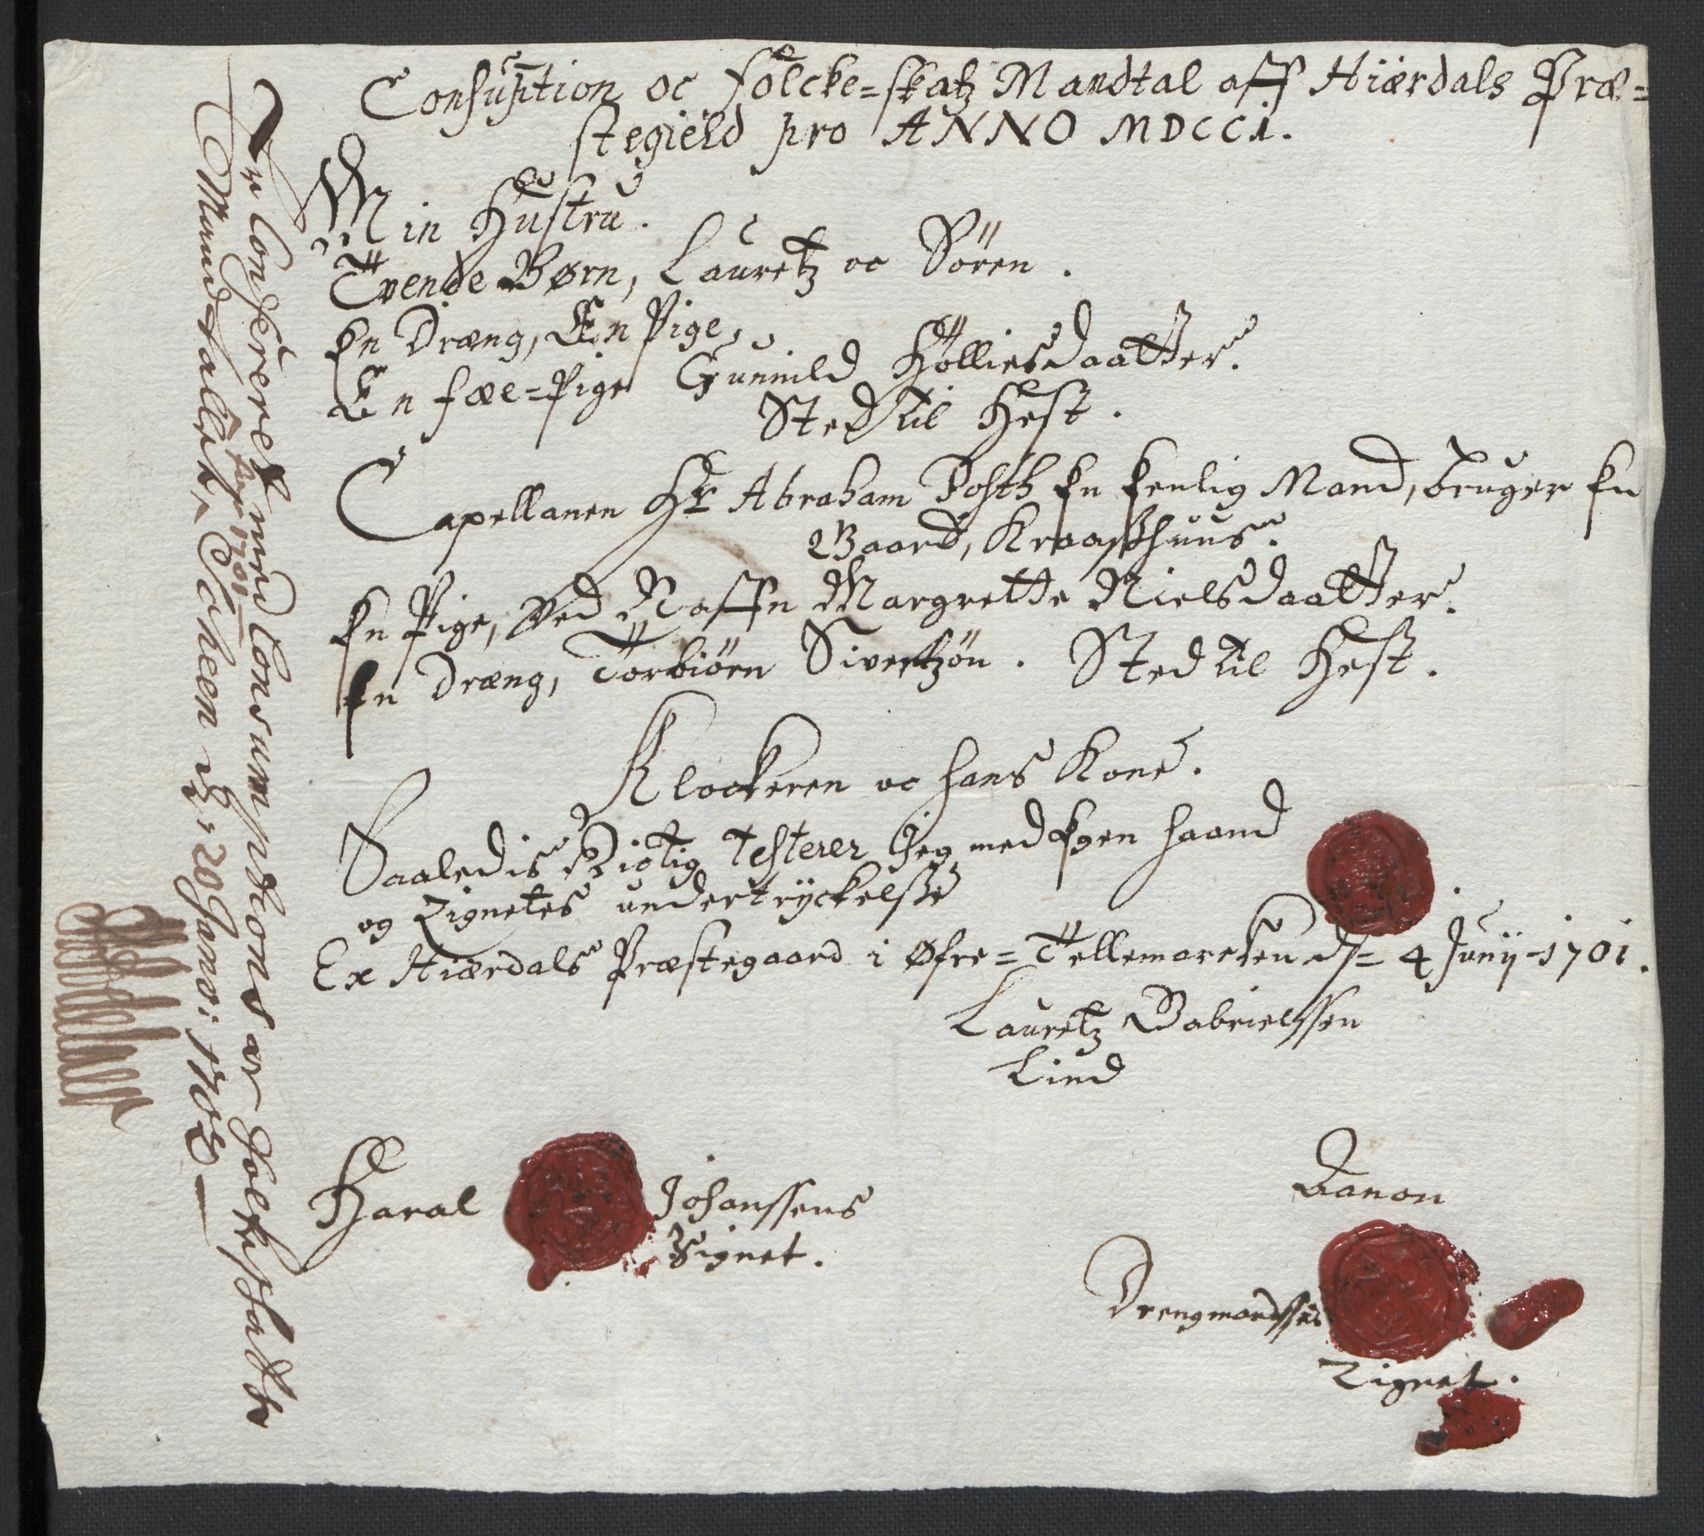 Consuption oc Folcke=skatz Mandtal aff Hiærdals Præ=
stegield pro ANNO MDCCI.
Min Hustru.
Tvende Børn, Lauretz oc Sören.
En Dræng, En Pige,
En fæe=Pige Gunnild Hölliesdaatter.
Sted til Hest.
Capellanen Hr Abraham Posth En Eenlig Mand, bruger En
Gaard, Kraaszhuus.
En Pige, Ved Naffn Margrette Nielsdaatter.
En Dræng, Torbiörn Sivertzön. Sted til Hest.
Klockeren oc hans Kone.
Saaledis Rigtig Testerer Jeg med Egen haand
og Zignetes undertryckelsse
Ex Hiærdals Præstegaard i Øfre=Tellemarcken d= 4 Junij - 1701.
Lauretz Gabrielssen
Lind
Haral Johanssens
Zignet.
Aanon
Drengmandssens
Zignet.
Er Confereret med Consumptions oc Folkeskatte
Mandtallet for 1701 Scheen d. 20 Janv: 1702